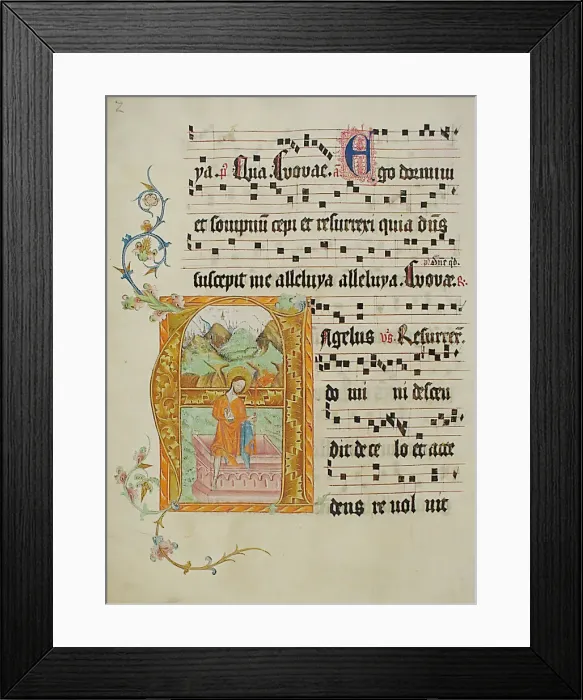 2
ya. p̄ Qua. Evovae. a͞ Ego dormivi
et sompnū cepi et resurrexi quia dn̄s
p̄. Dn̄e qd.
suscepit me alleluya alleluya. Evovae. R.
Angelus v̄s. Resurrex̄.
do mi ni descen
dit de ce lo et acce
dens re vol vit